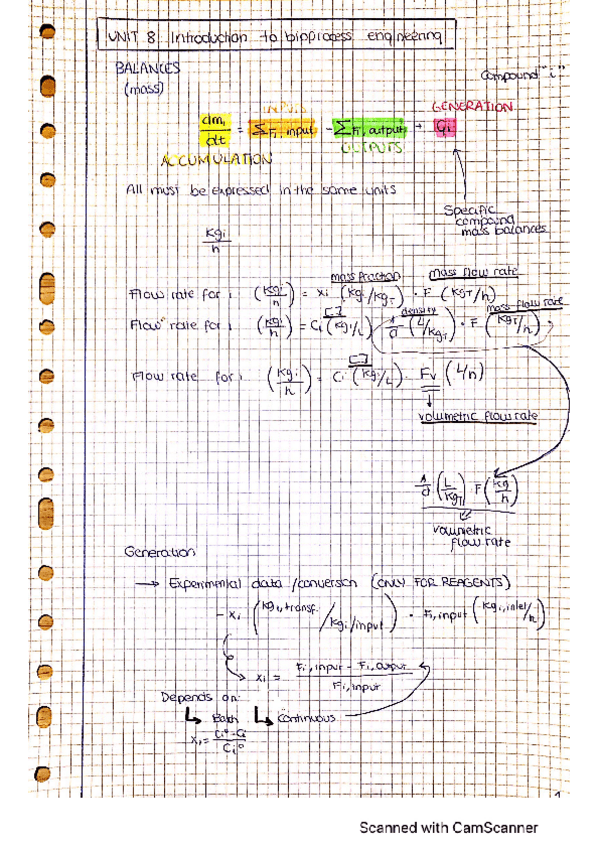 UNIT 8 Introduction to bioprocess engineering
BALANCES
(mass)
Compound "i"
INPUTS
GENERATION
dmi/dt = ΣFi, input - ΣFi, output + Gi
OUTPUTS
ACCUMULATION
All must be expressed in the same units
Specific
compound
mass balances
Kgi/h
mass fraction
mass flow rate
Flow rate for i (Kgi/h) = xi (Kgi/KgT) · F (KgT/h)
[ ]
density
mass flow rate
Flow rate for i (Kgi/h) = Ci (Kgi/L) 1/d (L/KgT) · F (KgT/h)
[ ]
Flow rate for i (Kgi/h) = Ci (Kgi/L) · Fv (L/h)
volumetric flow rate
1/d (L/KgT) F (Kg/h)
volumetric
flow rate
Generation
→ Experimental data / conversion (ONLY FOR REAGENTS)
- Xi (Kgi, transf. / Kgi input) · Fi, input (Kgi, inlet/h)
Xi = Fi, input - Fi, output / Fi, input
Depends on:
Batch
Continuous
Xi = Ci° - Ci / Ci°
1
Scanned with CamScanner